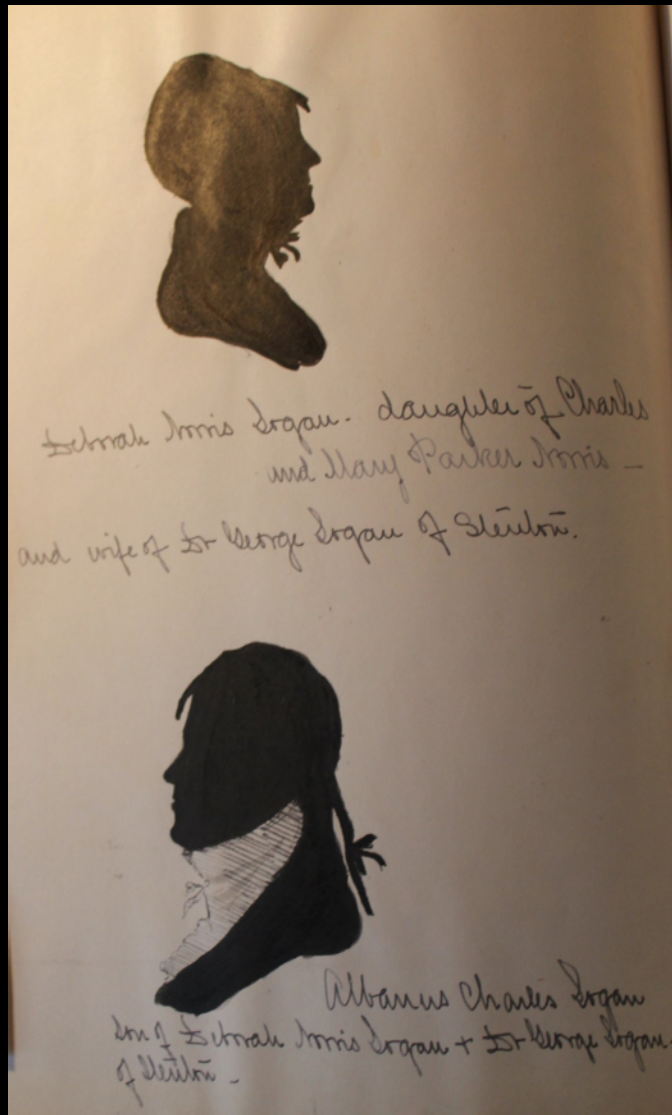 Deborah Norris Logan - daughter of Charles
and Mary Parker Norris -
and wife of Dr George Logan of Stenton.
Albanus Charles Logan
son of Deborah Norris Logan + Dr George Logan -
of Stenton -